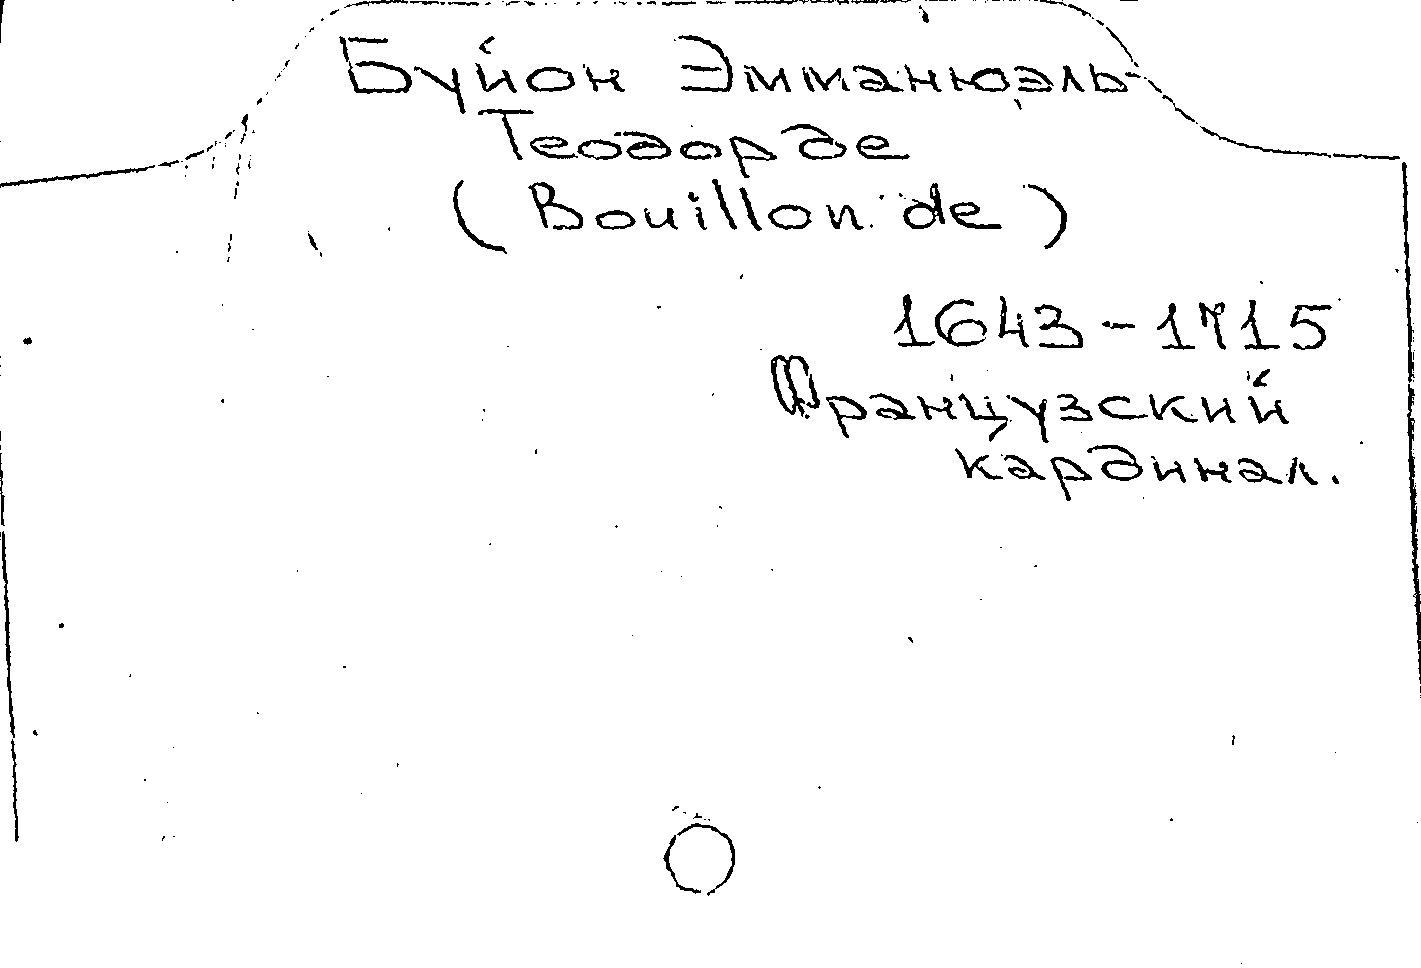 Буйон Эмманюэль-
Теодор де
(Bouillon de)
1643-1715
Французский
кардинал.